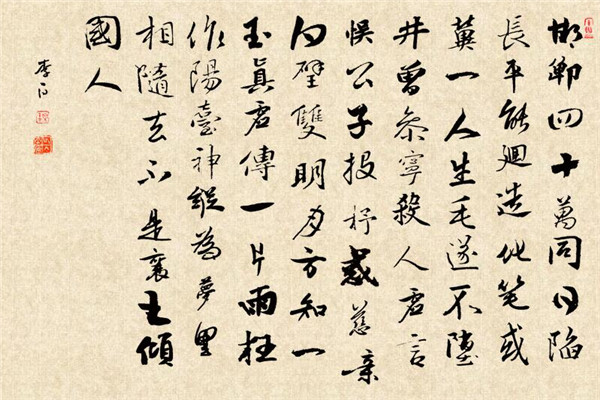 邯鄲四十萬同日陷
長平能迴造化筆或
冀一人生毛遂不墮
井曾參寧殺人君言
悞公子投杼惑慈亲
白璧雙明月方知一
玉真君傳一片雨枉
作陽臺神縱為夢里
相隨去不是襄王傾
國人
李